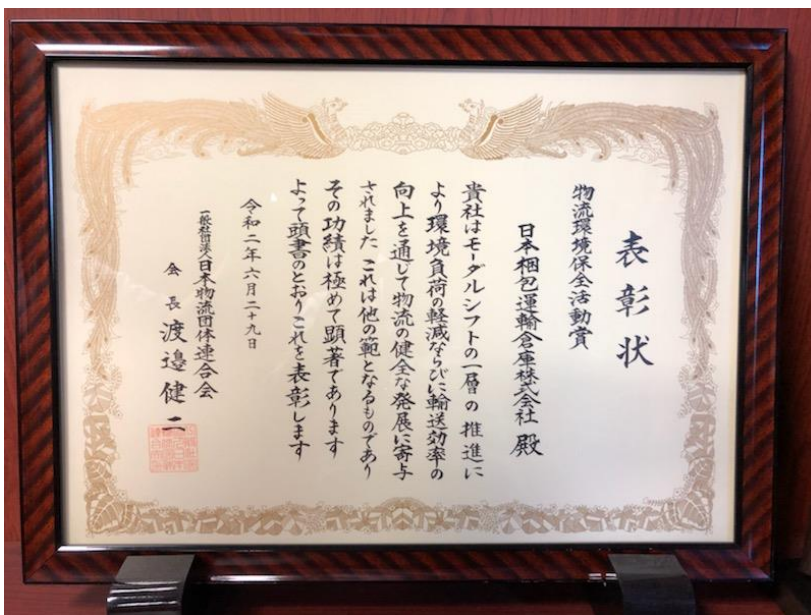 表彰状
物流環境保全活動賞
日本梱包運輸倉庫株式会社 殿
貴社はモーダルシフトの一層の推進に
より環境負荷の軽減ならびに輸送効率の
向上を通じて物流の健全な発展に寄与
されました これは他の範となるものであり
その功績は極めて顕著であります
よって頭書のとおりこれを表彰します
令和二年六月二十九日
一般社団法人日本物流団体連合会
会長 渡邉健二